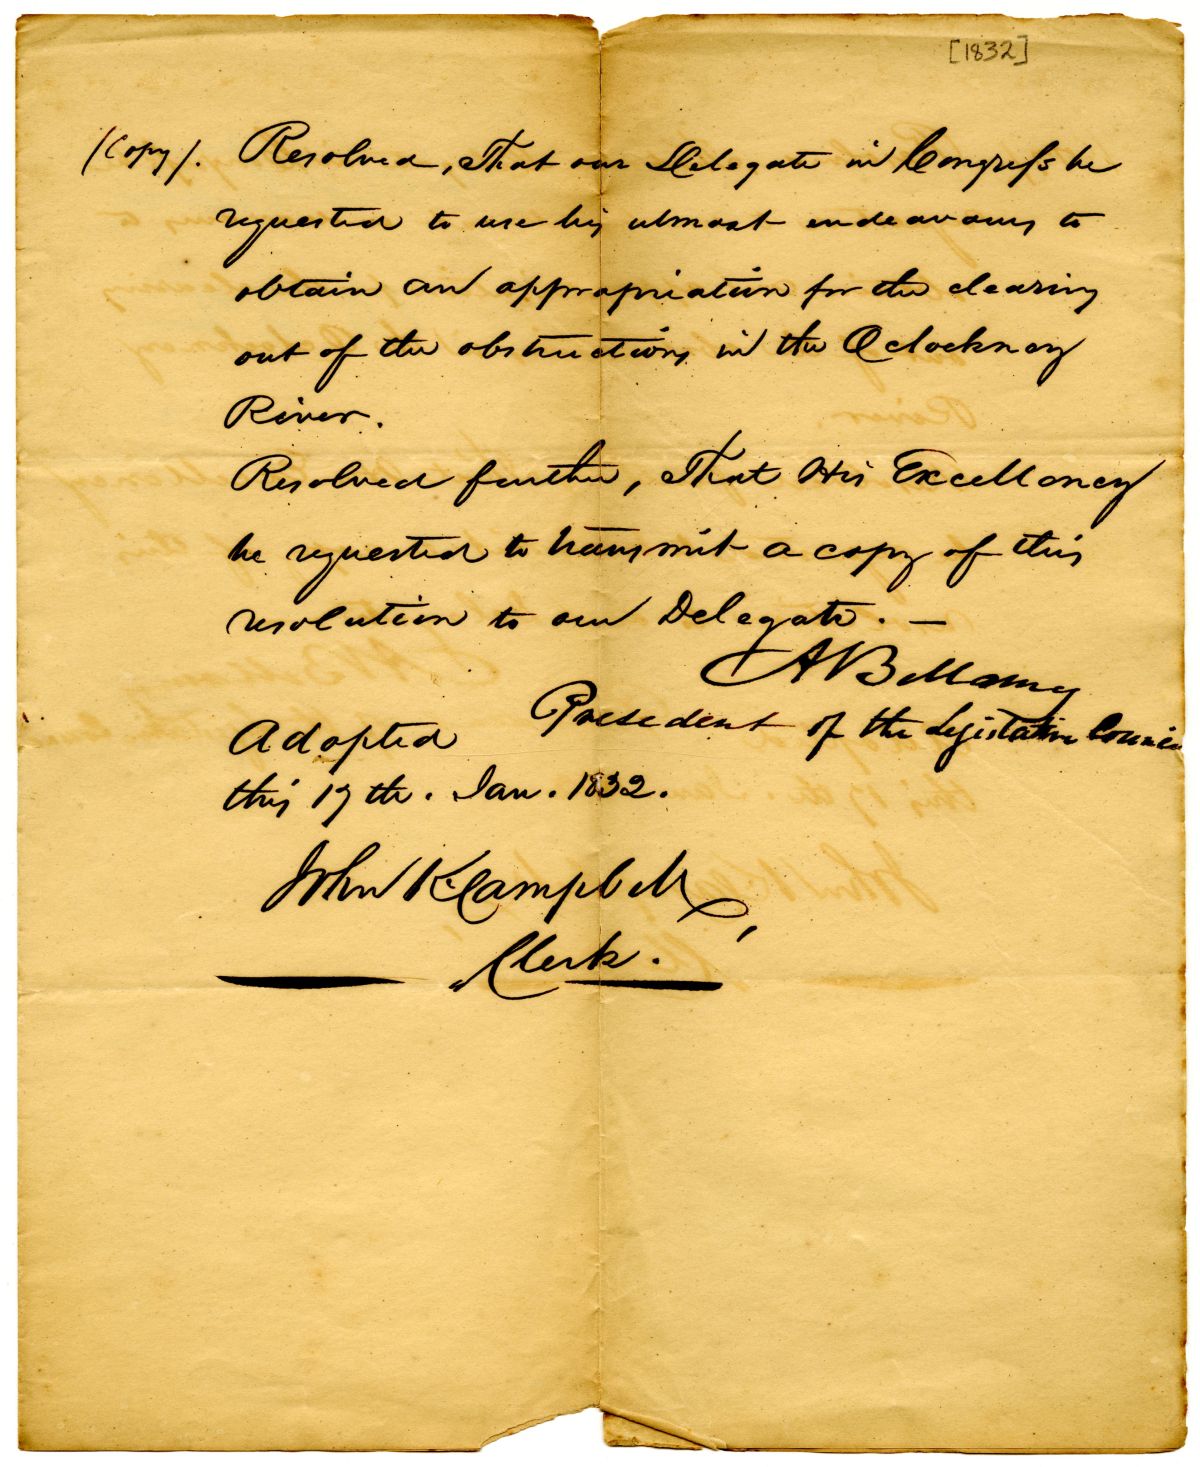 [1832]
(Copy). Resolved, That our Delegate in Congress be
requested to use his utmost endeavours to
obtain an appropriation for the clearing
out of the obstructions in the Oclockney
River.
Resolved further, That His Excellency
be requested to transmit a copy of this
resolution to our Delegate. —
A Bellamy
President of the Legislative Council
Adopted
this 17th. Jan. 1832.
John K Campbell,
Clerk.